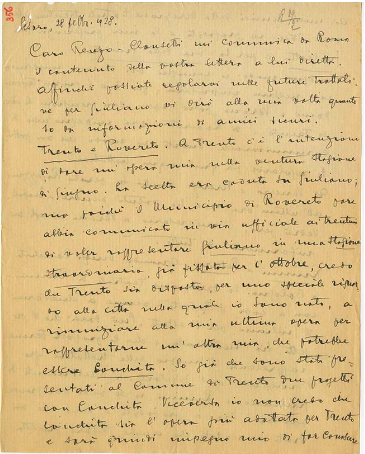 356
Pesaro, 28 febbr. 1928.
R
Caro Renzo - Clausetti mi comunica da Roma
il contenuto della vostra lettera a lui diretta.
Affinchè possiate regolarvi nelle future trattati-
ve per Giuliano vi dirò alla mia volta quanto
so da informazioni di amici sicuri.
Trento e Rovereto. A Trento c'è l'intenzione
di dare un'opera mia nella ventura stagione
di giugno. La scelta era caduta su Giuliano;
ma poichè il Municipio di Rovereto pare
abbia comunicato in via ufficiale ai trentini
di voler rappresentare Giuliano in una stagione
straordinaria, già fissata per l'ottobre, credo
che Trento sia disposta, per uno speciale riguar-
do alla città nella quale io sono nato, a
rinunziare alla mia ultima opera per
rappresentarne un'altra mia, che potrebbe
essere Conchita. So già che sono stati pre-
sentati al Comune di Trento due progetti
con Conchita. Viceversa io non credo che
Conchita sia l'opera più adatta per Trento
e sarà quindi impegno mio di far